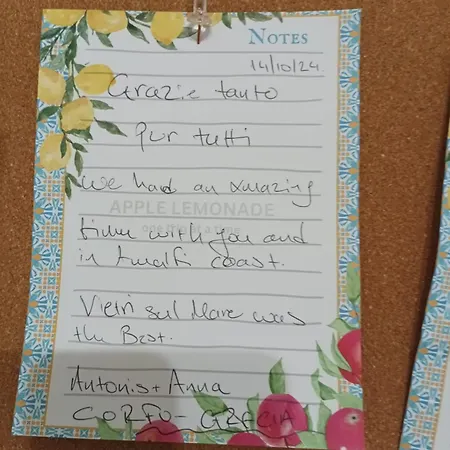 NOTES
14/10/24.
Grazie tanto
pur tutti
we had an amazing
APPLE LEMONADE
time with you and
in Amalfi coast.
Vietri sul Mare was
the Best.
Antonis + Anna
CORFU - GRECIA